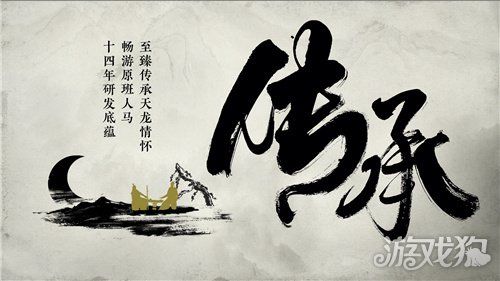 至臻传承天龙情怀
畅游原班人马
十四年研发底蕴
传承
游戏狗